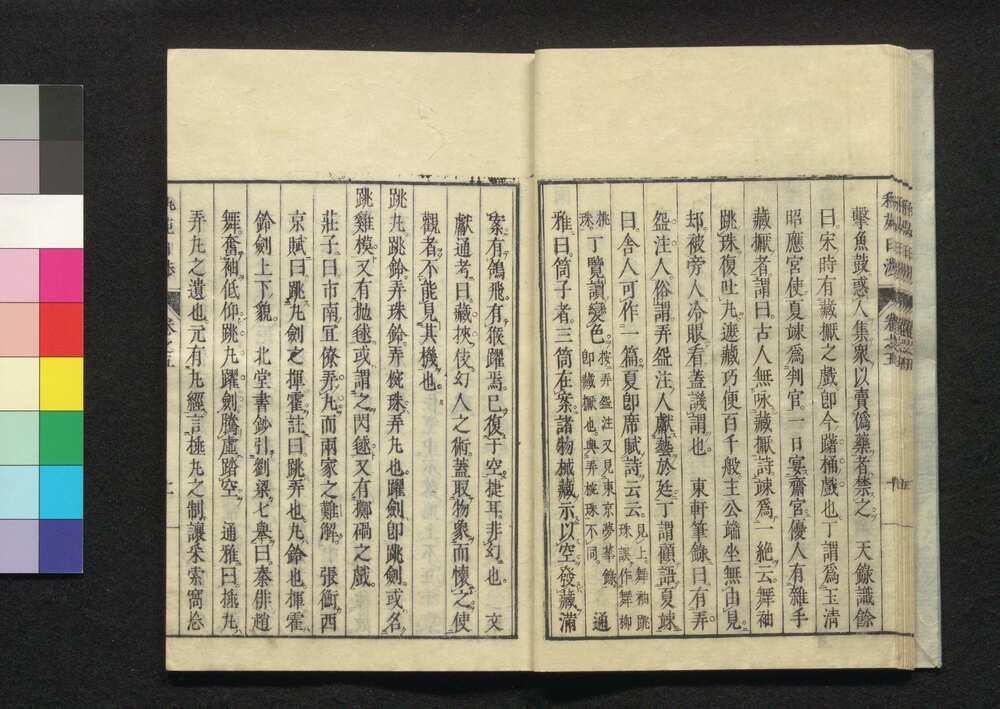 擊魚鼓惑人集衆以賣僞藥者禁之　天錄識餘
曰宋時有藏擫之戲卽今躇桶戲也丁謂爲玉清
昭應宮使夏竦爲判官一日宴齋宮優人有雜手
藏擫者謂曰古人無咏藏擫詩竦爲一絶云舞袖
跳珠復吐丸遮藏巧便百千般主公端坐無由見
却被旁人冷眼看蓋譏謂也　東軒筆錄曰有弄
盌注人俗謂弄盌注人獻藝於廷丁謂顧語夏竦
曰舍人可作一篇夏卽席賦詩云云見上舞袖跳珠誤作舞柳
桃珠丁覽讀變色按弄盌注又見東京夢華錄卽藏擫也與弄椀珠不同通
雅曰筒子者三筒在案諸物械藏示以空發藏滿
案有鴿飛有猴躍焉已復于空捷耳非幻也　文
獻通考曰藏挾伎幻人之術蓋取物象而懷之使
觀者不能見其機也
跳丸跳鈴弄珠鈴弄椀珠弄丸也躍劍卽跳劍或名
跳雞模又有拋毬或謂之閃毬又有擲碢之戲
莊子曰市南宜僚弄丸而兩家之難解　張衡西
京賦曰跳丸劍之揮霍註曰跳弄也丸鈴也揮霍
鈴劍上下貌　北堂書鈔引劉梁七舉曰秦俳趙
舞奮袖低仰跳丸躍劍騰虛踏空　通雅曰挑丸
弄丸之遺也元有丸經言捶丸之制讓采索窩悋